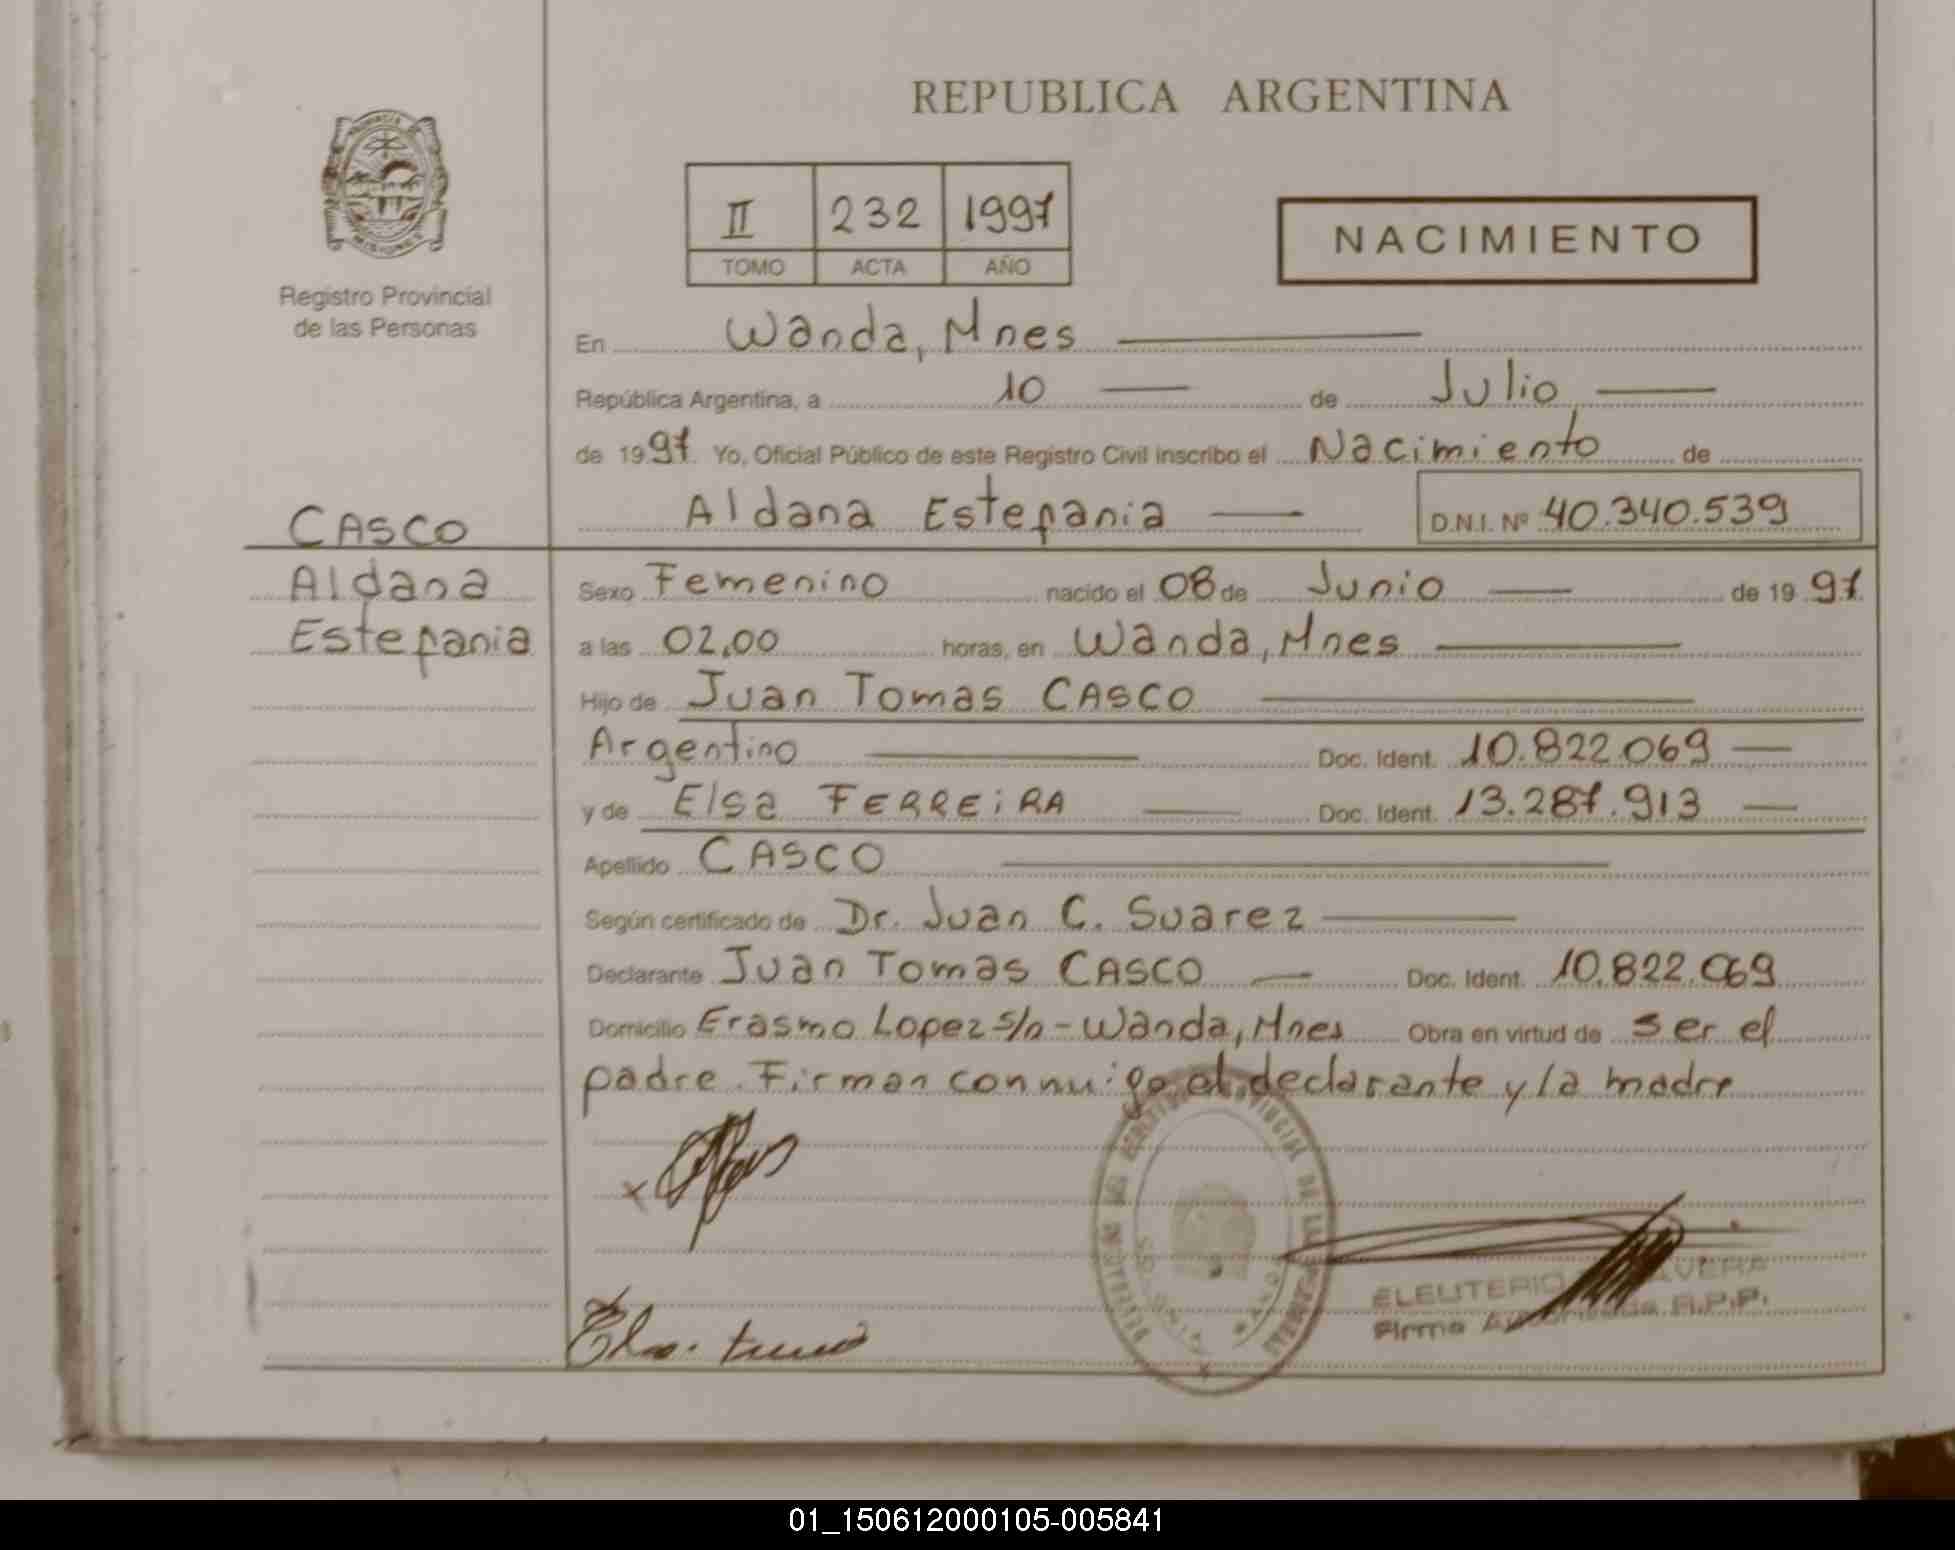 REPUBLICA ARGENTINA
II 232 1997
TOMO ACTA AÑO
NACIMIENTO
Registro Provincial
de las Personas
En Wanda, Mnes
República Argentina, a 10 de Julio
de 1997 Yo, Oficial Público de este Registro Civil inscribo el Nacimiento de
Aldana Estefania D.N.I. Nº 40.340.539
CASCO
Aldana
Estefania
Sexo Femenino nacido el 08 de Junio de 1997.
a las 02,00 horas, en Wanda, Mnes
Hijo de Juan Tomas CASCO
Argentino Doc. Ident. 10.822.069
y de Elsa FERREiRA Doc. Ident. 13.287.913
Apellido CASCO
Según certificado de Dr. Juan C. Suarez
Declarante Juan Tomas CASCO Doc. Ident. 10.822.069
Domicilio Erasmo Lopez s/n - Wanda, Mnes Obra en virtud de ser el
padre. Firman conmigo el declarante y la madre
ELEUTERIO
Firma Autorizada R.P.P.
01_150612000105-005841